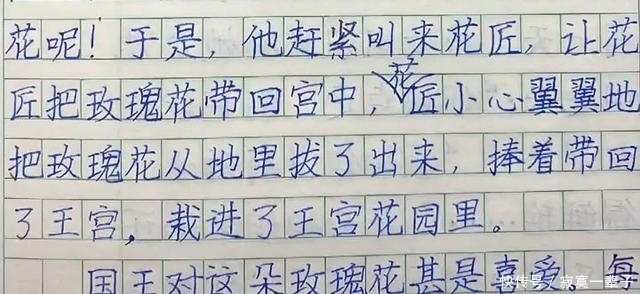 花呢！于是，他赶紧叫来花匠，让花
匠把玫瑰花带回宫中，花匠小心翼翼地
把玫瑰花从地里拔了出来，捧着带回
了王宫，栽进了王宫花园里。
国王对这朵玫瑰花甚是喜爱，每
快传号／寂寞一辈子